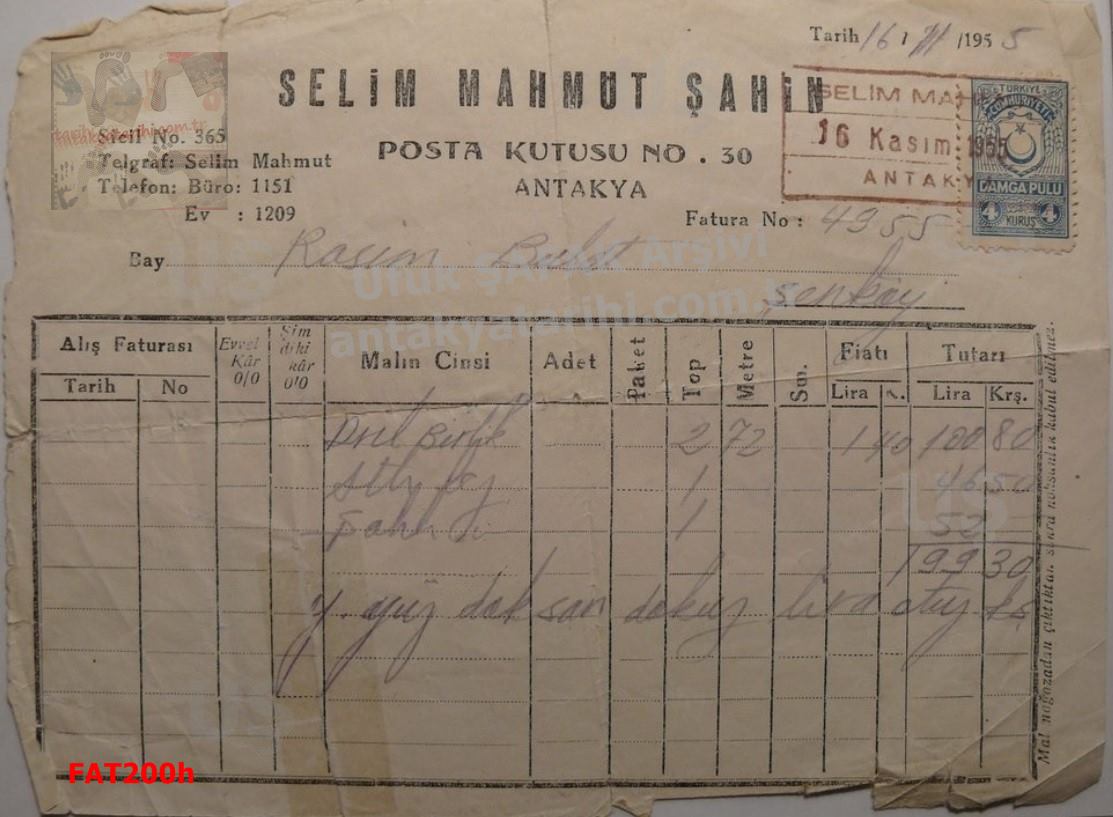 Tarih 16 / 11 / 1955
SELİM MAHMUT ŞAHİN
SELİM MAH
16 Kasım 1955
ANTAKYA
TÜRKİYE
CUMHURİYETİ
DAMGA PULU
4 KURUŞ 4
tarih
antakyatarihi.com.tr
Sicil No. 365
Telgraf: Selim Mahmut
Telefon: Büro: 1151
Ev : 1209
POSTA KUTUSU NO . 30
ANTAKYA
Fatura No : 4955
Bay Rasim Bulut
Şenköy
Ufuk ŞAHUK Arşivi
antakyatarihi.com.tr
Alış Faturası Evvel Kâr 0/0 Şim diki kâr 0/0 Malın Cinsi Adet Paket Top Metre Sm. Fiatı Tutarı
Tarih No Lira Lira Krş.
Dril Birlik 2 72 1 40 100 80
1 46 50
1 52
199 30
Y. yüz doksan dokuz lira otuz kş
Mal mağazadan çıktıktan sonra noksanlık kabul edilmez.
US
FAT200h